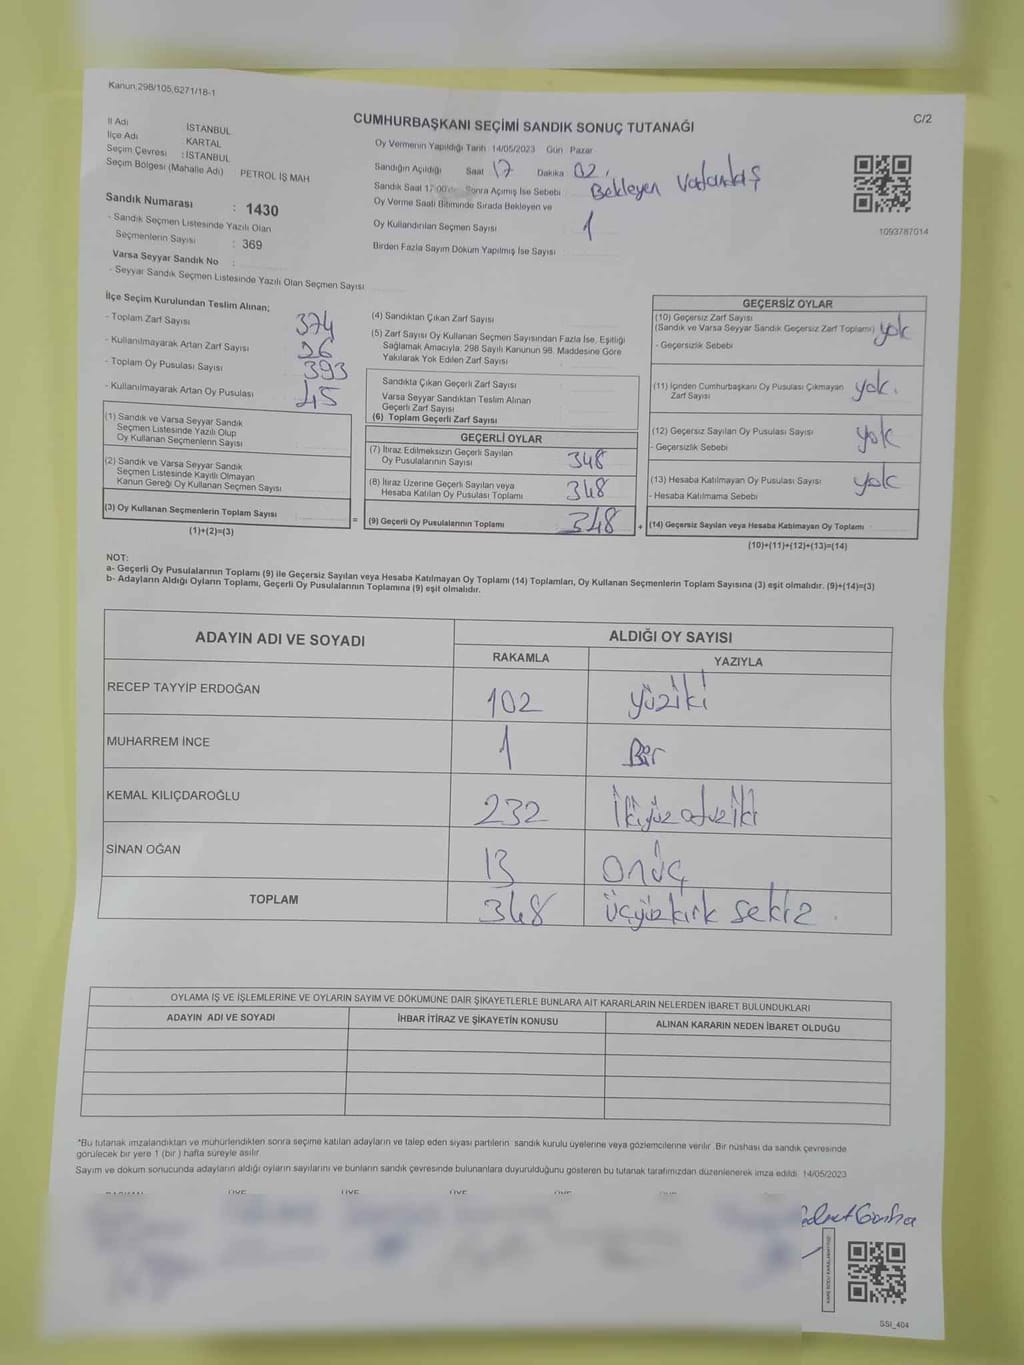 Kanun,298/105,6271/18-1
C/2
CUMHURBAŞKANI SEÇİMİ SANDIK SONUÇ TUTANAĞI
İl Adı İSTANBUL
İlçe Adı KARTAL
Seçim Çevresi : İSTANBUL
Seçim Bölgesi (Mahalle Adı) PETROL İŞ MAH
Oy Vermenin Yapıldığı Tarih 14/05/2023 Gün Pazar
Sandığın Açıldığı Saat 17 Dakika 02
Sandık Saat 17:00 Sonra Açımış İse Sebebi Bekleyen Vatandaş
Oy Verme Saati Bitiminde Sırada Bekleyen ve
Oy Kullandırılan Seçmen Sayısı 1
Birden Fazla Sayım Döküm Yapılmış İse Sayısı
1093787014
Sandık Numarası : 1430
- Sandık Seçmen Listesinde Yazılı Olan
Seçmenlerin Sayısı : 369
Varsa Seyyar Sandık No :
- Seyyar Sandık Seçmen Listesinde Yazılı Olan Seçmen Sayısı
İlçe Seçim Kurulundan Teslim Alınan;
- Toplam Zarf Sayısı 374
- Kullanılmayarak Artan Zarf Sayısı 26
- Toplam Oy Pusulası Sayısı 393
- Kullanılmayarak Artan Oy Pusulası 45
(1) Sandık ve Varsa Seyyar Sandık
Seçmen Listesinde Yazılı Olup
Oy Kullanan Seçmenlerin Sayısı
(2) Sandık ve Varsa Seyyar Sandık
Seçmen Listesinde Kayıtlı Olmayan
Kanun Gereği Oy Kullanan Seçmen Sayısı
(3) Oy Kullanan Seçmenlerin Toplam Sayısı
(1)+(2)=(3)
=
(4) Sandıktan Çıkan Zarf Sayısı
(5) Zarf Sayısı Oy Kullanan Seçmen Sayısından Fazla İse, Eşitliği
Sağlamak Amacıyla, 298 Sayılı Kanunun 98. Maddesine Göre
Yakılarak Yok Edilen Zarf Sayısı
Sandıkta Çıkan Geçerli Zarf Sayısı
Varsa Seyyar Sandıktan Teslim Alınan
Geçerli Zarf Sayısı
(6) Toplam Geçerli Zarf Sayısı
GEÇERLİ OYLAR
(7) İtiraz Edilmeksizin Geçerli Sayılan
Oy Pusulalarının Sayısı 348
(8) İtiraz Üzerine Geçerli Sayılan veya
Hesaba Katılan Oy Pusulası Toplamı 348
(9) Geçerli Oy Pusulalarının Toplamı 348
+
GEÇERSİZ OYLAR
(10) Geçersiz Zarf Sayısı
(Sandık ve Varsa Seyyar Sandık Geçersiz Zarf Toplamı) yok
- Geçersizlik Sebebi
(11) İçinden Cumhurbaşkanı Oy Pusulası Çıkmayan
Zarf Sayısı yok.
(12) Geçersiz Sayılan Oy Pusulası Sayısı yok
- Geçersizlik Sebebi
(13) Hesaba Katılmayan Oy Pusulası Sayısı yok
- Hesaba Katılmama Sebebi
(14) Geçersiz Sayılan veya Hesaba Katılmayan Oy Toplamı
(10)+(11)+(12)+(13)=(14)
NOT:
a- Geçerli Oy Pusulalarının Toplamı (9) ile Geçersiz Sayılan veya Hesaba Katılmayan Oy Toplamı (14) Toplamları, Oy Kullanan Seçmenlerin Toplam Sayısına (3) eşit olmalıdır. (9)+(14)=(3)
b- Adayların Aldığı Oyların Toplamı, Geçerli Oy Pusulalarının Toplamına (9) eşit olmalıdır.
ADAYIN ADI VE SOYADI ALDIĞI OY SAYISI
RAKAMLA YAZIYLA
RECEP TAYYİP ERDOĞAN 102 yüziki
MUHARREM İNCE 1 Bir
KEMAL KILIÇDAROĞLU 232 ikiyüz otuziki
SİNAN OĞAN 13 onüç
TOPLAM 348 üçyüzkırk sekiz
OYLAMA İŞ VE İŞLEMLERİNE VE OYLARIN SAYIM VE DÖKÜMÜNE DAİR ŞİKAYETLERLE BUNLARA AİT KARARLARIN NELERDEN İBARET BULUNDUKLARI
ADAYIN ADI VE SOYADI İHBAR İTİRAZ VE ŞİKAYETİN KONUSU ALINAN KARARIN NEDEN İBARET OLDUĞU
*Bu tutanak imzalandıktan ve mühürlendikten sonra seçime katılan adayların ve talep eden siyasi partilerin sandık kurulu üyelerine veya gözlemcilerine verilir. Bir nüshası da sandık çevresinde
görülecek bir yere 1 (bir ) hafta süreyle asılır
Sayım ve döküm sonucunda adayların aldığı oyların sayılarını ve bunların sandık çevresinde bulunanlara duyurulduğunu gösteren bu tutanak tarafımızdan düzenlenerek imza edildi. 14/05/2023
SSI_404